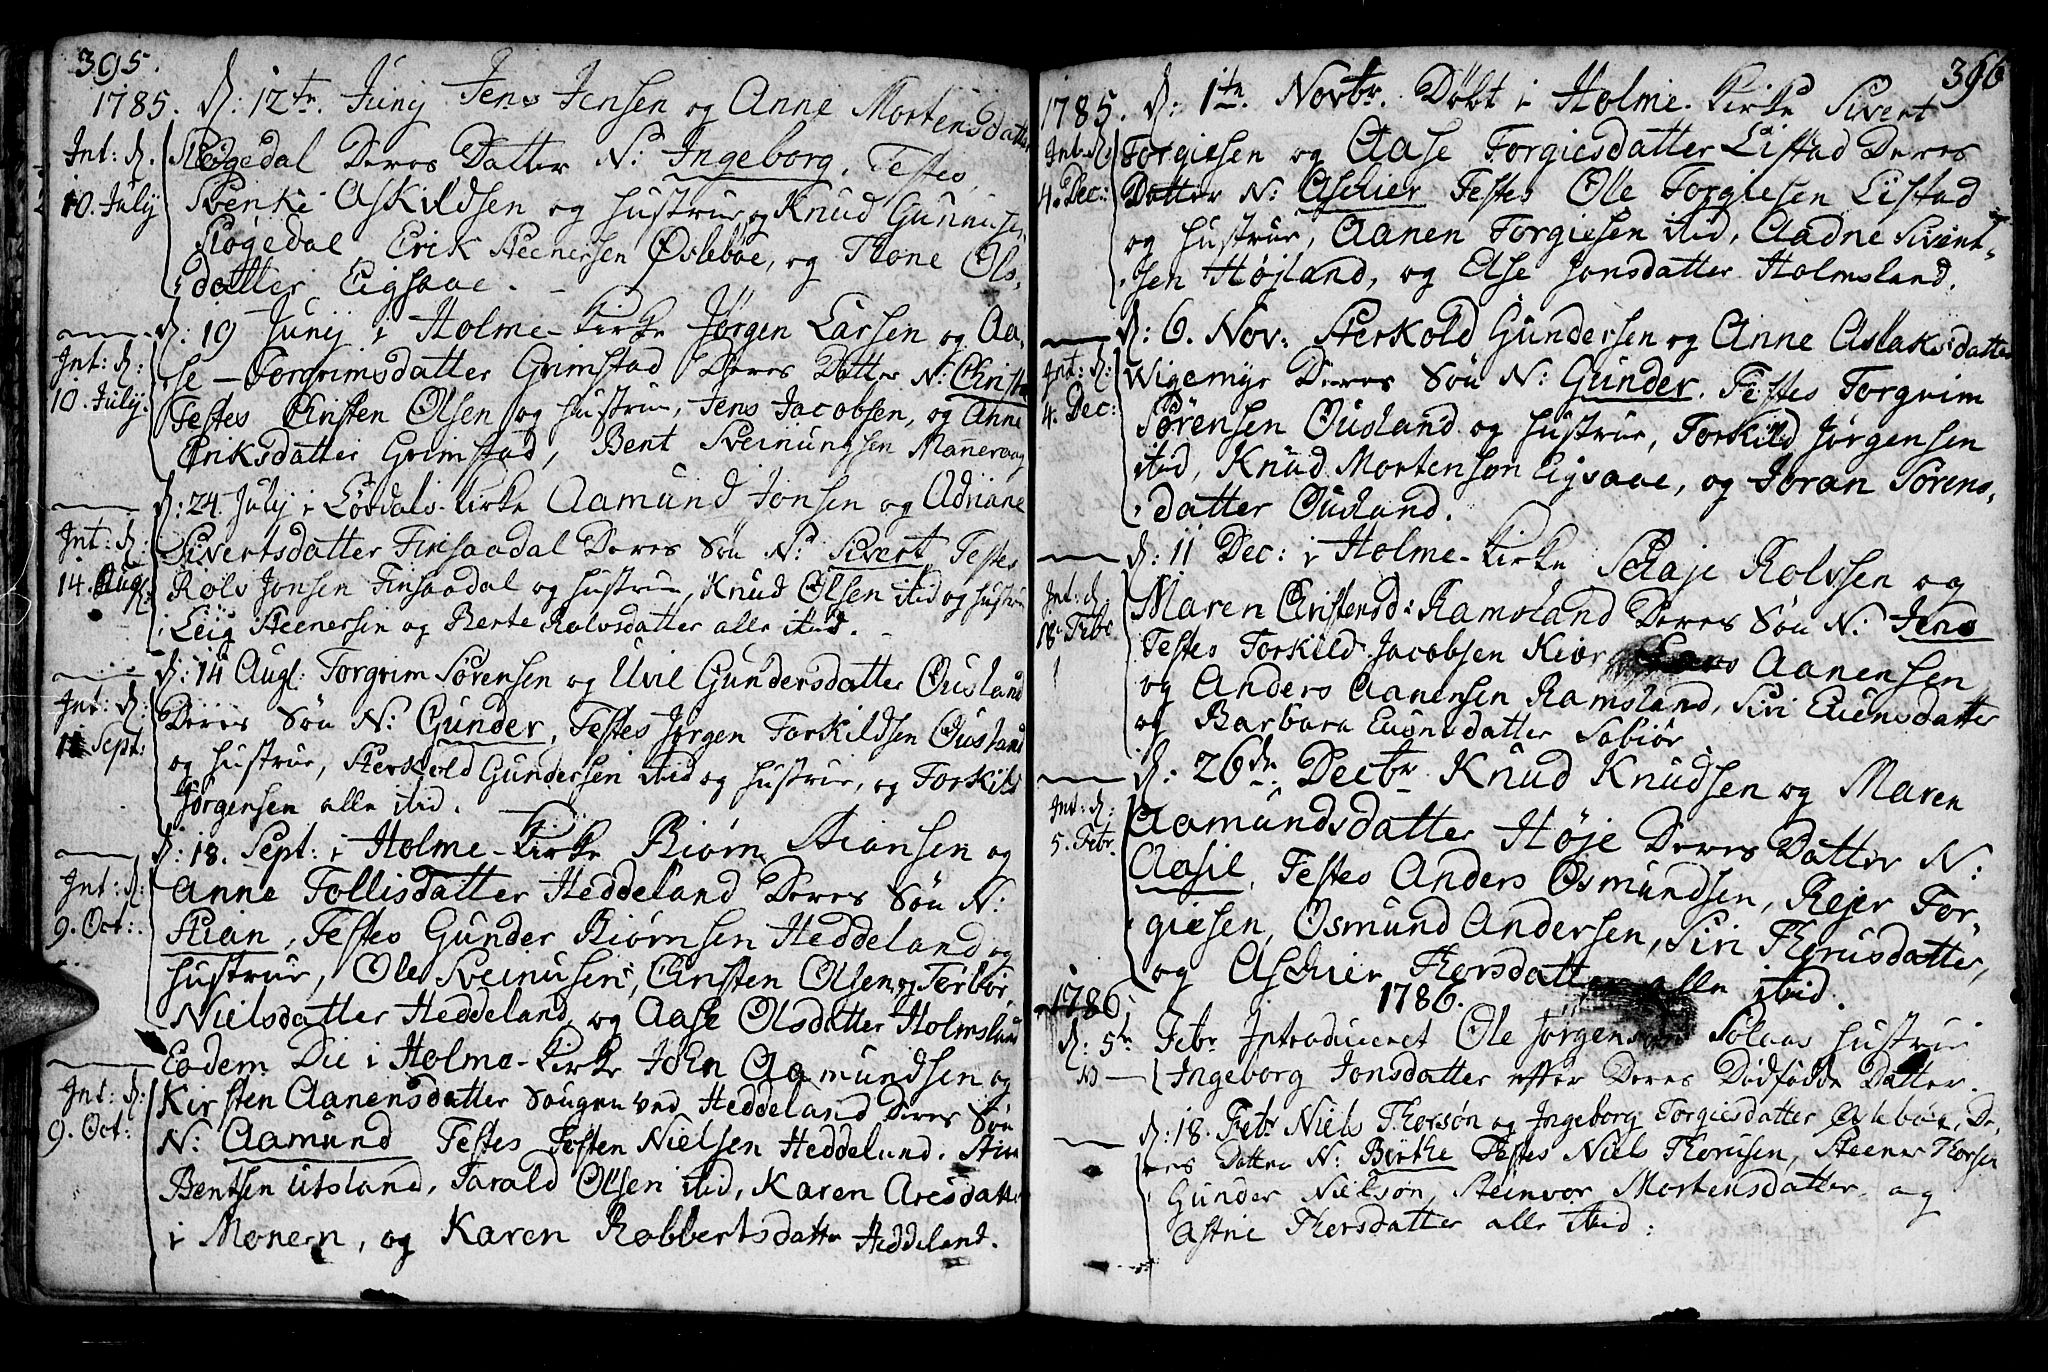 395.
1785. d: 12te. Junij Jens Jensen og Anne Mortensdatter
Int: d. 10. July
Sløgedal Deres Datter N: Ingeborg. Testes
Svenke Askildsen og Hustrue og Knud Gunnufsen
Sløgedal Erik Steenersen Øslebøe, og Thone Ols-
datter Eigsaae.
d: 19 Junij i Holme-Kirke Jørgen Larsen og Aa-
Int: d: 10. July:
se Torgrimsdatter Grimstad Deres Datter N:
Testes Christen Olsen og Hustrue, Jens Jacobsen, og Anne
Eriksdatter Grimstad, Bent Sveinungsen Mannevaag
d: 24 July i Løvdals-Kirke Aamund Jonsen og Adriane
Int: d: 14. Aug:
Sivertsdatter Finsaadal Deres Søn N: Sivert Testes
Rolv Jonsen Finsaadal og Hustrue, Knud Olsen ibid og Hustrue
Leig Steenersen og Berte Rolvsdatter alle ibid.
d: 14 Aug: Torgrim Sørensen og Uvil Gundersdatter Ousland
Int: d: 11 Sept:
Deres Søn N: Gunder, Testes Jørgen Torkildsen Ousland
og Hustrue, Sterkold Gundersen ibid og Hustrue, og Torkild
Jørgensen alle ibid.
d: 18. Sept: i Holme-Kirke Biørn Stiansen og
Int: d: 9. Oct:
Anne Tollisdatter Heddeland Deres Søn N:
Stian, Testes Gunder Biørnsen Heddeland og
Hustrue, Ole Sveinusen, Christen Olsen, og Torbør
Nielsdatter Heddeland, og Aase Olsdatter Holmsland
Eodem Die i Holme-Kirke Joen Aamundsen og
Int: d: 9. Oct:
Kirsten Aanensdatter Sougen ved Heddeland Deres Søn
N: Aamund Testes Testen Nielsen Heddeland. Stian
Bentsen Utsland, Tarald Olsen ibid, Karen Aresdatter
i Monen, og Karen Robbertsdatter Heddeland.
396
1785. d: 1te. Novbr. Døbt i Holme-Kirke Sivert
Int: d: 4. Dec:
Torgiesen og Aase Torgiesdatter Listad Deres
Datter N: Aschier Testes Ole Torgiesen Listad
og Hustrue, Aanen Torgiesen ibid, Aadne Sivert-
sen Højland, og Else Jonsdatter Holmsland.
d: 6. Nov: Sterkold Gundersen og Anne Aslaksdatter
Int: d: 4. Dec:
Wigemyr Deres Søn N: Gunder. Testes Torgrim
Sørensen Ousland og Hustrue, Torkild Jørgensen
ibid, Knud Mortensøn Eigsaae, og Joran Sørens-
datter Ousland.
d: 11 Dec: i Holme-Kirke Staje Rolvsen og
Int: d: 18 Febr
Maren Christensd: Ramsland Deres Søn N: Jens
Testes Torkild Jacobsen Kiør, Aanensen
og Anders Aanensen Ramsland, Siri Evensdatter
og Barbara Evensdatter Sobiør
d: 26de. Decbr Knud Knudsen og Maren
Int: d: 5. Febr.
Aamundsdatter Høje Deres Datter N:
Aasil, Testes Anders Osmundsen, Rejer Tor-
giesen, Osmund Andersen, Siri Thorusdatter,
og Aschier Thorsdatter alle ibid.
1786. 1786.
d: 5te Febr Introduceret Ole Jørgensens Solaas Hustrue
Ingeborg Jonsdatter efter Deres Dødfødde Datter.
d: 18. Febr Niels Thorsøn og Ingeborg Torgiesdatter De-
res Datter N: Birthe Testes Niels Thorusen, Steener Thorsen
Gunder Nielsøn, Steinvor Mortensdatter og
Astrie Thorsdatter alle ibid: